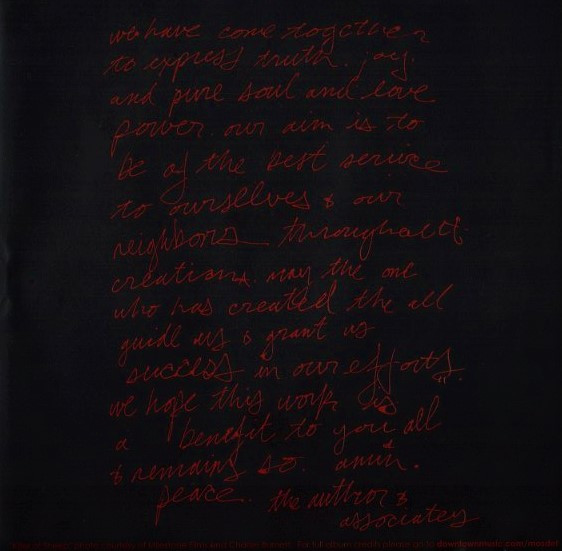 we have come together
to express truth. joy.
and pure soul and love
power. our aim is to
be of the best service
to ourselves & our
neighbors throughout
creation. may the one
who has created the all
guide us & grant us
success in our efforts.
we hope this work is
a benefit to you all
& remains so. amin.
peace. the author &
associates